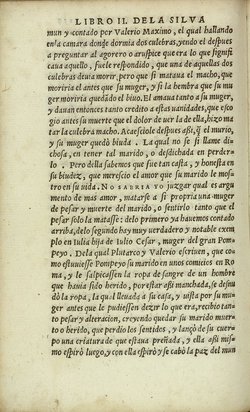 LIBRO II. DE LA SILVA
mun y contado por Valerio Maximo, el qual hallando
en la camara donde dormia dos culebras, yendo el despues
a preguntar al agorero o aruspice que era lo que signifi
caua aquello, fuele respondido, que una de aquellas dos
culebras deuia morir, pero que si mataua el macho, que
moriria el antes que su muger, y si la hembra que su mu
ger moriria quedādo el biuo. El amaua tanto a su muger,
y dauan entonces tanto credito a estas uanidades, que eli
gio antes su muerte que el dolor de uer la della, hizo ma
tar la culebra macho. Acaesciole despues assi, q̃ el murio,
y su muger quedò biuda. La qual no se si llame di-
chosa, en tener tal marido, o desdichada en perder-
lo. Pero della sabemos que fue tan casta, y honesta en
su biudez, que meresció el amor que su marido le mo-
stro en su uida. NO SABRIA YO juzgar qual es argu
mento de mas amor, matarse a si propria una muger
de pesar y muerte del marido, o sentirlo tanto que el
pesar solo la matasse: delo primero ya hauemos contado
arriba, delo segundo hay muy uerdadero y notable exem
plo en tulia hija de Iulio Cesar, muger del gran Pom-
peyo. Dela qual Plutarco y Valerio escriuen, que co
mo estuuiesse Pompeyo su marido en unos comicios en Ro
ma, y le salpicassen la ropa de sangre de un hombre
que hauia sido herido, por estar assi manchada, se desnu
dò la ropa, la qual lleuada a su casa, y uista por su mu-
ger antes que le pudiessen dezir lo que era, recibio tan-
to pesar y alteracion, creyendo quedar su marido muer-
to o herido, que perdio los sentidos, y lançò de su cuer-
po una criatura de que estaua preñada, y ella assi mis-
mo espirò luego, y con ella espirò y se cabò la paz del mun